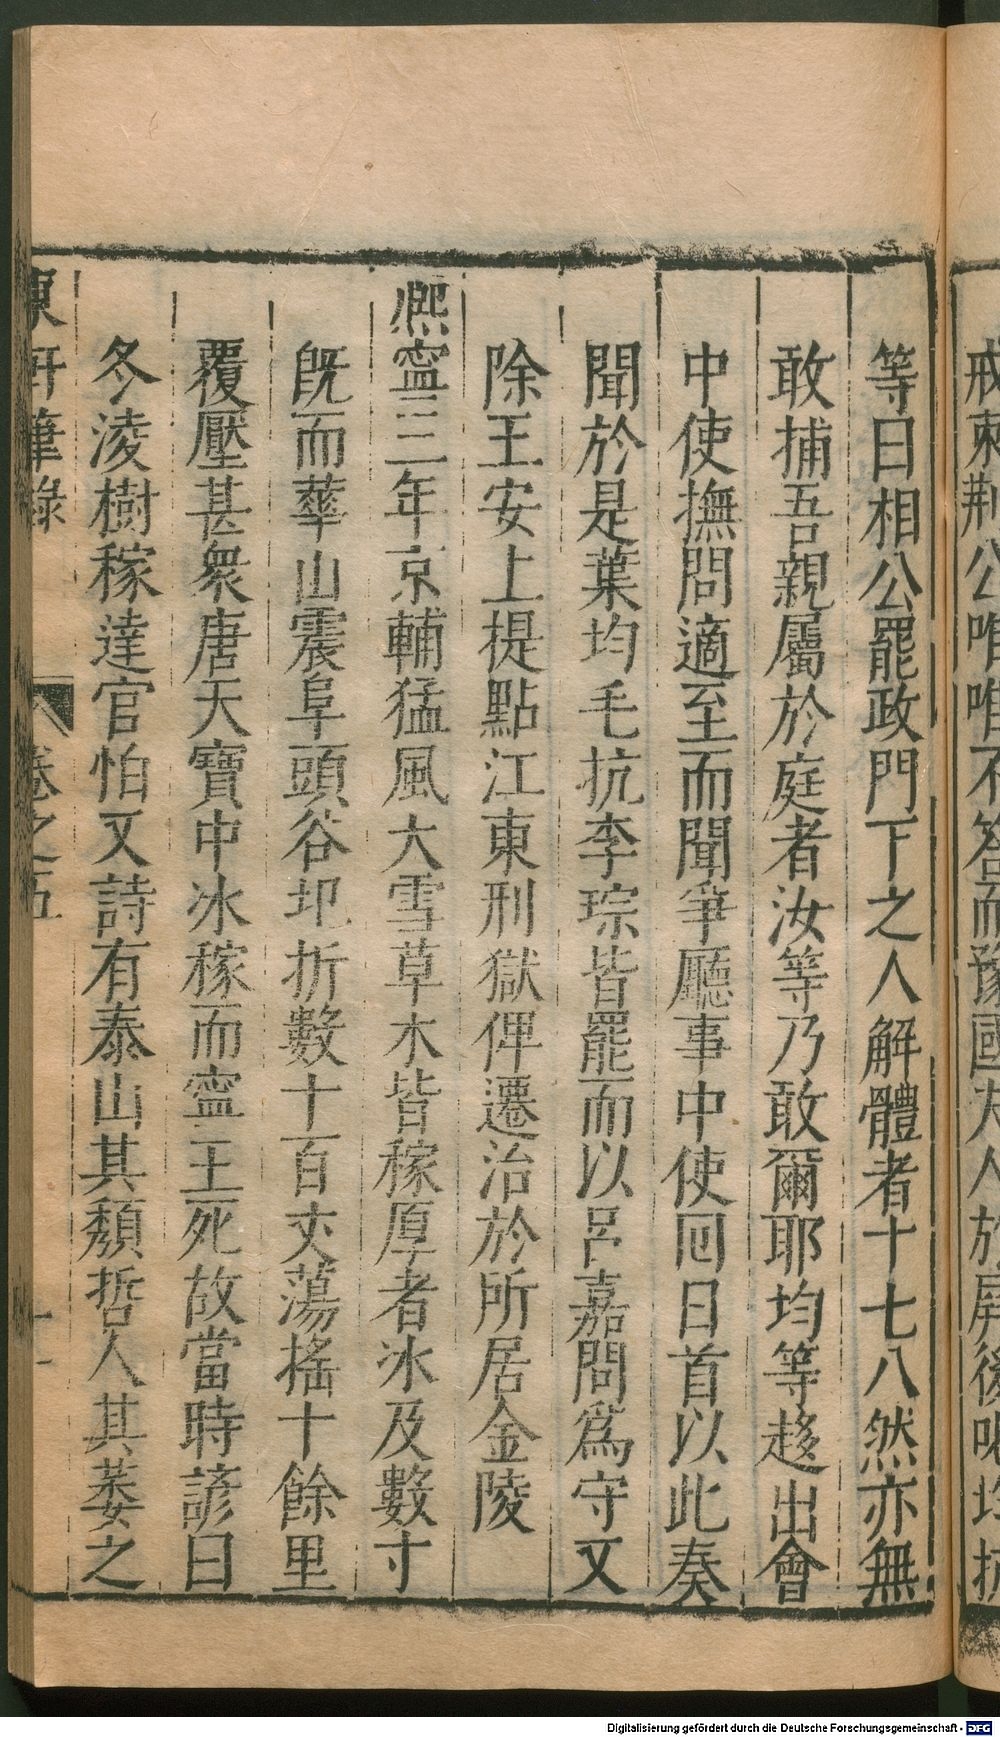 戒
公唯唯不答而豫國夫人於屏後
等曰相公罷政門下之人解體者十七八然亦無
敢捕吾親屬於庭者汝等乃敢爾耶均等趍出會
中使撫問適至而聞爭廳事中使回日首以此奏
聞於是葉均毛抗李琮皆罷而以呂嘉問爲守又
除王安上提點江東刑獄俾遷治於所居金陵
熈寧三年京輔猛風大雪草木皆稼厚者冰及數寸
旣而華山震阜頭谷圯折數十百丈蕩搖十餘里
覆壓甚衆唐天寶中冰稼而寧王死故當時諺曰
冬淩樹稼達官怕又詩有泰山其頹哲人其萎之
東軒筆錄 卷之五
Digitalisierung gefördert durch die Deutsche Forschungsgemeinschaft - DFG